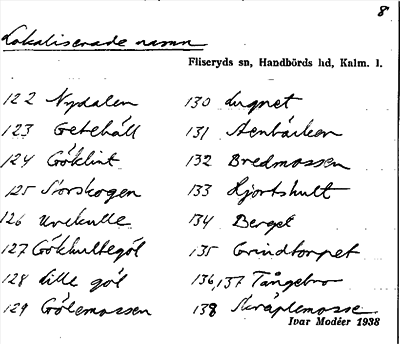 8
Lokaliserade namn
Fliseryds sn, Handbörds hd, Kalm. l.
122 Nydalen
123 Getehäll
124 Göklint
125 Norskogen
126 Uvekulle
127 Gökhultegöl
128 Lille göl
129 Gölemossen
130 Lugnet
131 Stenbäcken
132 Bredmossen
133 Hjortshult
134 Berget
135 Grindtorpet
136,137 Tångebro
138 Skräplemosse
Ivar Modéer 1938